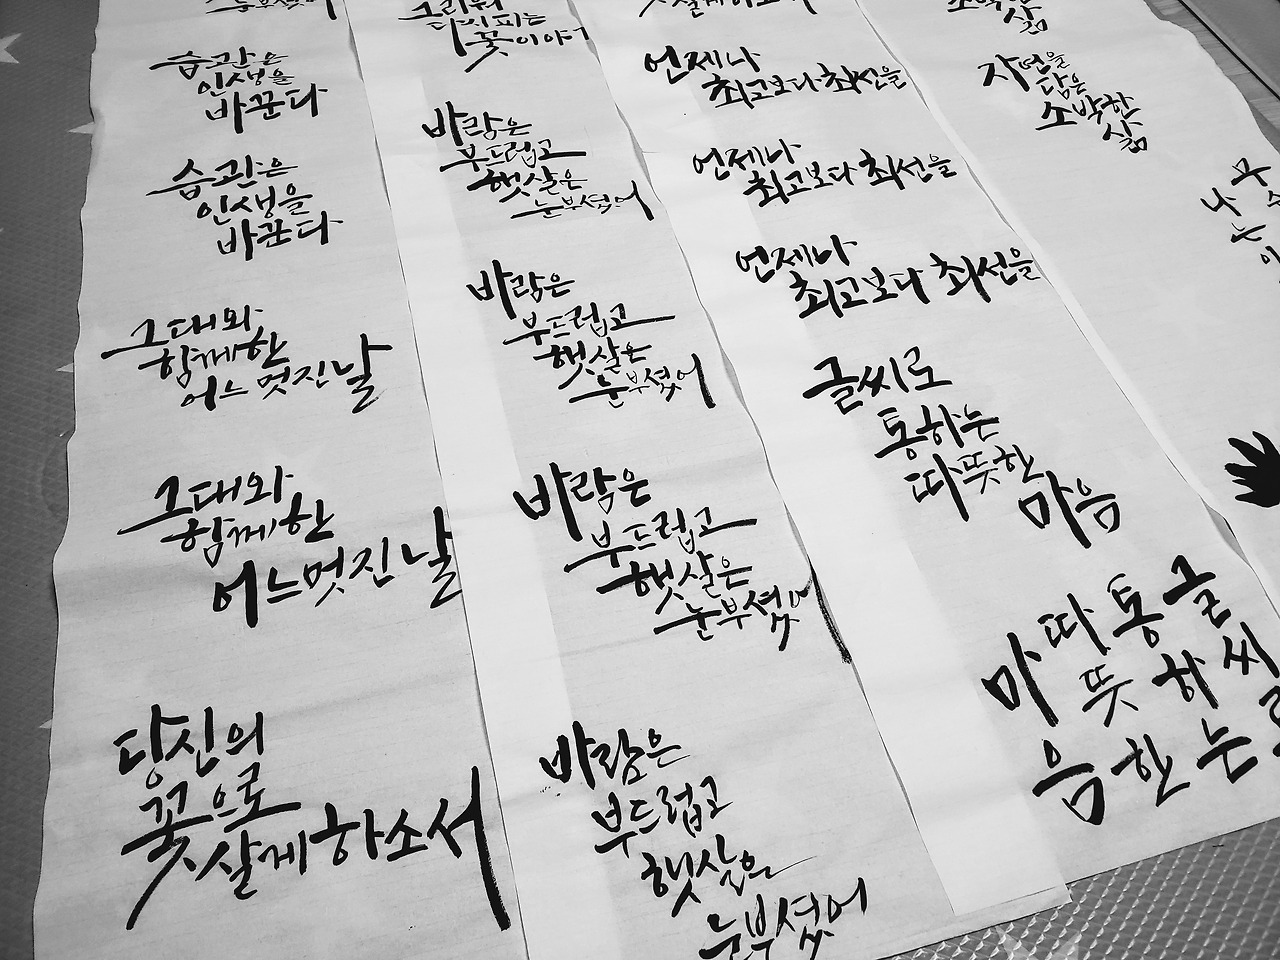 눈부셨어
습관은
인생을
바꾼다
습관은
인생을
바꾼다
그대와
함께한
어느 멋진 날
그대와
함께한
어느 멋진 날
당신의
꽃으로
살게 하소서
그리워
다시 피는
꽃이야기
바람은
부드럽고
햇살은
눈부셨어
바람은
부드럽고
햇살은
눈부셨어
바람은
부드럽고
햇살은
눈부셨어
바람은
부드럽고
햇살은
눈부셨어
살게 하소서
언제나
최고보다 최선을
언제나
최고보다 최선을
언제나
최고보다 최선을
글씨로
통하는
따뜻한
마음
글씨로
통하는
따뜻한
마음
소박한
삶
자연을
닮은
소박한
삶
나는